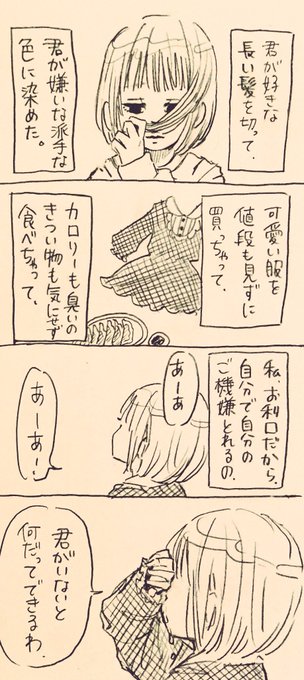 君が好きな
長い髪を切って、
君が嫌いな派手な
色に染めた。
可愛い服を
値段も見ずに
買っちゃって、
カロリーも臭いの
きつい物も気にせず
食べちゃって、
私、お利口だから、
自分で自分の
ご機嫌とれるの。
あーあ
あーあ!
君がいないと
何だってできるわ。